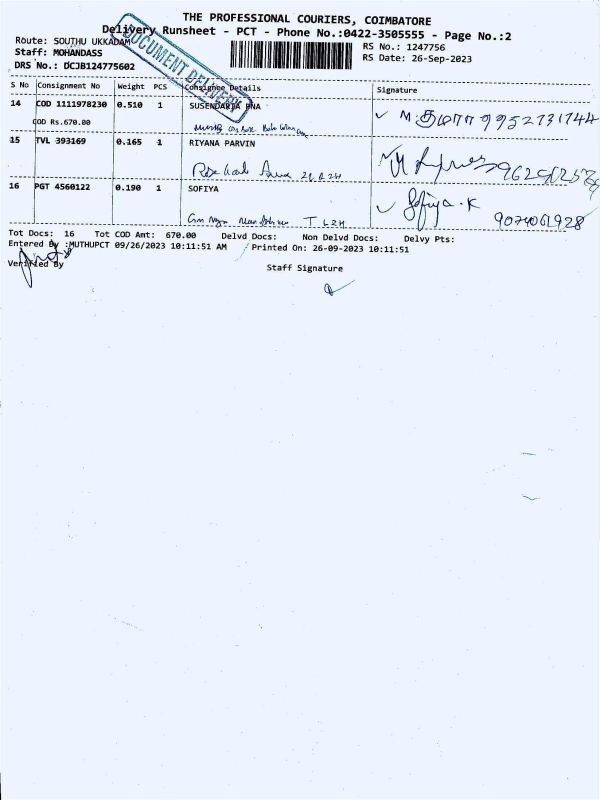 THE PROFESSIONAL COURIERS, COIMBATORE
Delivery Runsheet - PCT - Phone No.:0422-3505555 - Page No.:2
Route: SOUTHU UKKADAM
RS No.: 1247756
Staff: MOHANDASS
RS Date: 26-Sep-2023
DRS No.: DCJB124775602
DOCUMENT DELIVERY
S No Consignment No Weight PCS Consignee Details Signature
14 COD 1111978230 0.510 1 SUSENDARJA BNA
COD Rs.670.00
M. குமார 9952731744
15 TVL 393169 0.165 1 RIYANA PARVIN
16 PGT 4560122 0.190 1 SOFIYA
Sofiya.K
9074061928
Tot Docs: 16 Tot COD Amt: 670.00 Delvd Docs: Non Delvd Docs: Delvy Pts:
Entered By :MUTHUPCT 09/26/2023 10:11:51 AM Printed On: 26-09-2023 10:11:51
Verified By
Staff Signature